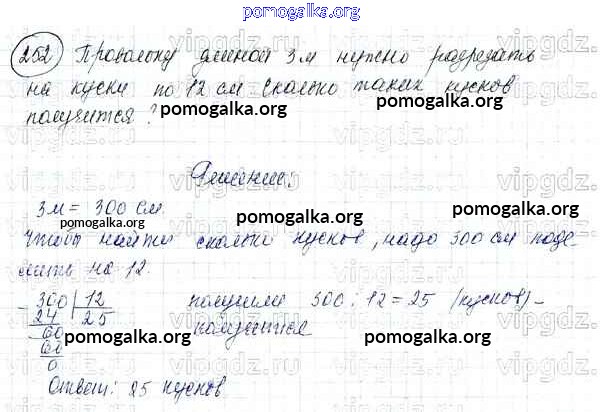 pomogalka.org
252 Проволоку длиной 3 м нужно разрезать
на куски по 12 см Сколько таких кусков
получится?
pomogalka.org pomogalka.org
Решение:
3м = 300 см.
pomogalka.org pomogalka.org
Чтобы найти сколько кусков, надо 300 см поде-
лить на 12.
300 | 12 получили 300 : 12 = 25 (кусков) –
24 25 получится
60
pomogalka.org pomogalka.org
60
0
Ответ: 25 кусков